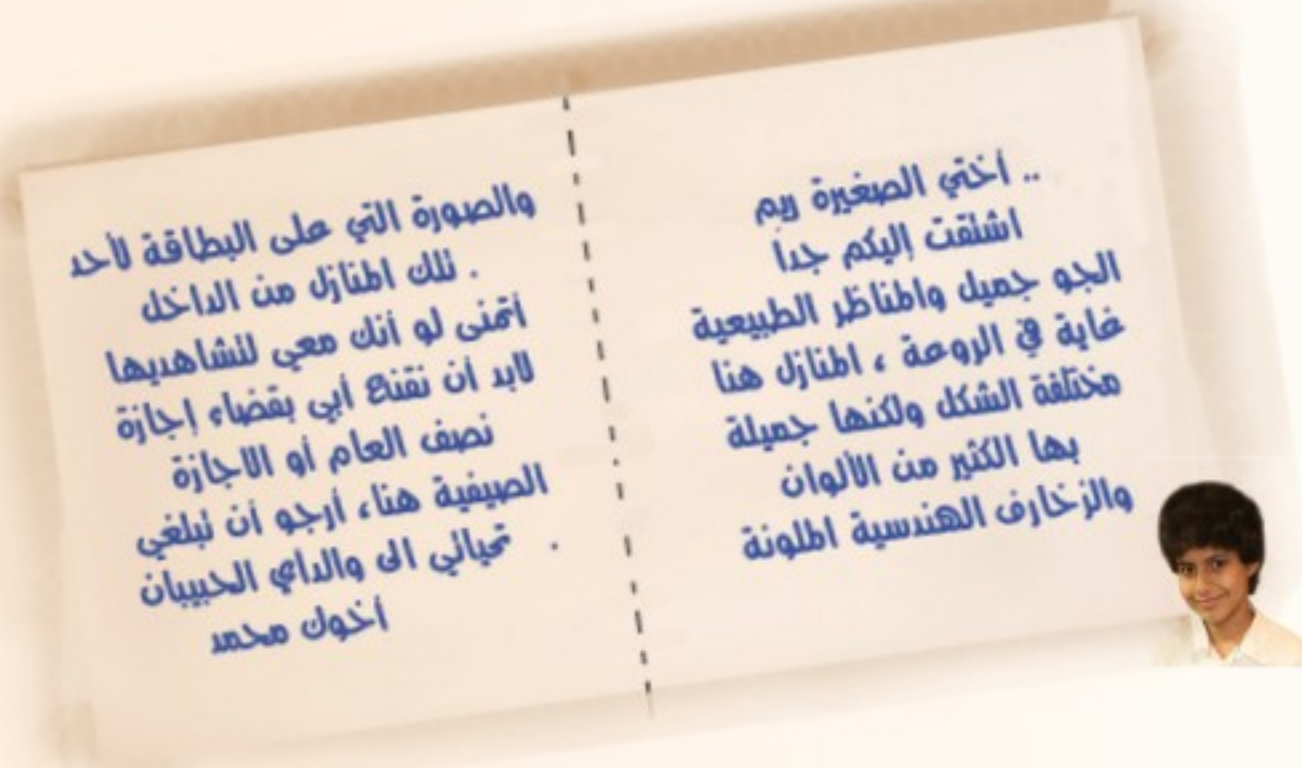 .. أختي الصغيرة ريم
اشتقت إليكم جداً
الجو جميل والمناظر الطبيعية
غاية في الروعة ، المنازل هنا
مختلفة الشكل ولكنها جميلة
بها الكثير من الألوان
والزخارف الهندسية الملونة
والصورة التي على البطاقة لأحد
. تلك المنازل من الداخل
أتمنى لو أنك معي لتشاهديها
لابد أن نقنع أبي بقضاء إجازة
نصف العام أو الاجازة
الصيفية هنا، أرجو أن تبلغي
. تحياتي الى والداي الحبيبان
أخوك محمد